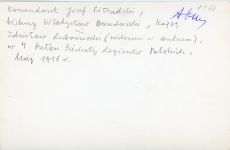 Komendant Józef Piłsudski,
biskup Władysław Bandurski, książę
Zdzisław Lubomirski (widoczni w centrum),
w 4 Pułku Piechoty Legionów Polskich,
Maj 1916 r.